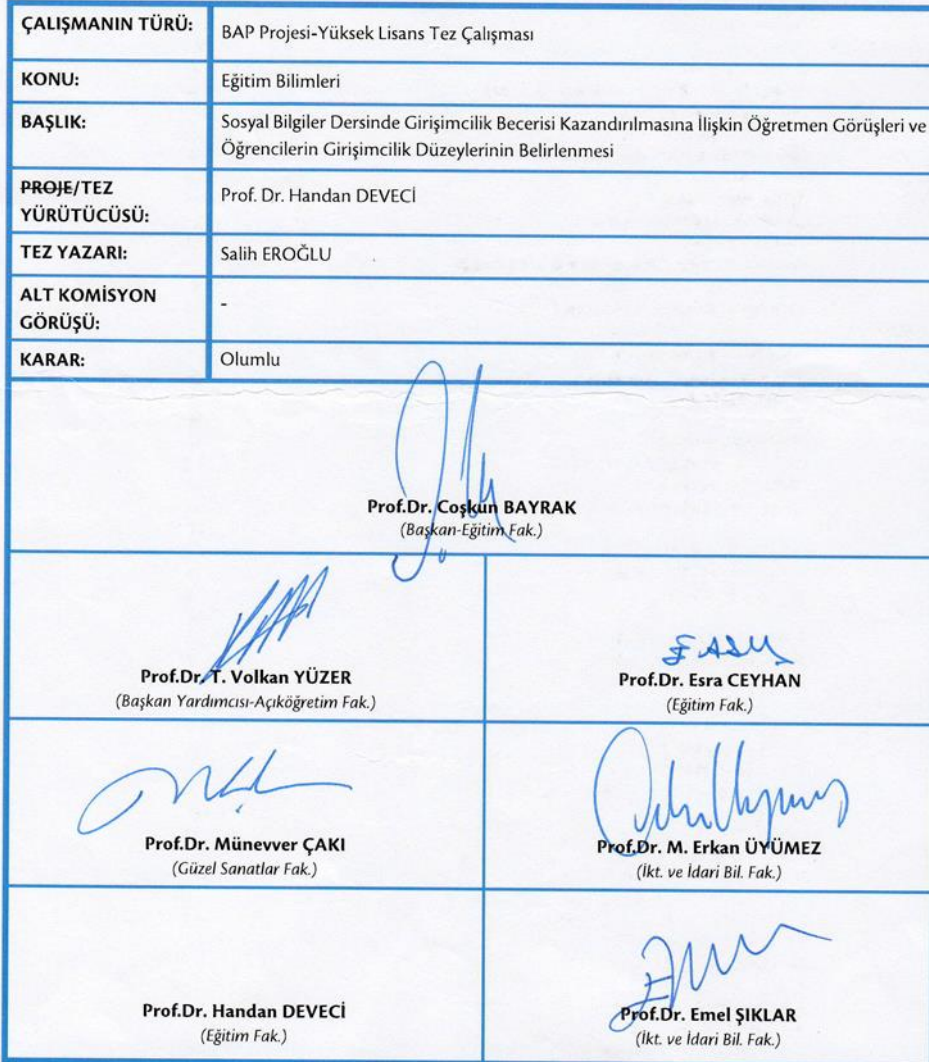 ÇALIŞMANIN TÜRÜ: BAP Projesi-Yüksek Lisans Tez Çalışması
KONU: Eğitim Bilimleri
BAŞLIK: Sosyal Bilgiler Dersinde Girişimcilik Becerisi Kazandırılmasına İlişkin Öğretmen Görüşleri ve
Öğrencilerin Girişimcilik Düzeylerinin Belirlenmesi
PROJE/TEZ
YÜRÜTÜCÜSÜ: Prof. Dr. Handan DEVECİ
TEZ YAZARI: Salih EROĞLU
ALT KOMİSYON
GÖRÜŞÜ: -
KARAR: Olumlu
Prof.Dr. Coşkun BAYRAK
(Başkan-Eğitim Fak.)
Prof.Dr. T. Volkan YÜZER
(Başkan Yardımcısı-Açıköğretim Fak.)
Prof.Dr. Esra CEYHAN
(Eğitim Fak.)
Prof.Dr. Münevver ÇAKI
(Güzel Sanatlar Fak.)
Prof.Dr. M. Erkan ÜYÜMEZ
(İkt. ve İdari Bil. Fak.)
Prof.Dr. Handan DEVECİ
(Eğitim Fak.)
Prof.Dr. Emel ŞIKLAR
(İkt. ve İdari Bil. Fak.)